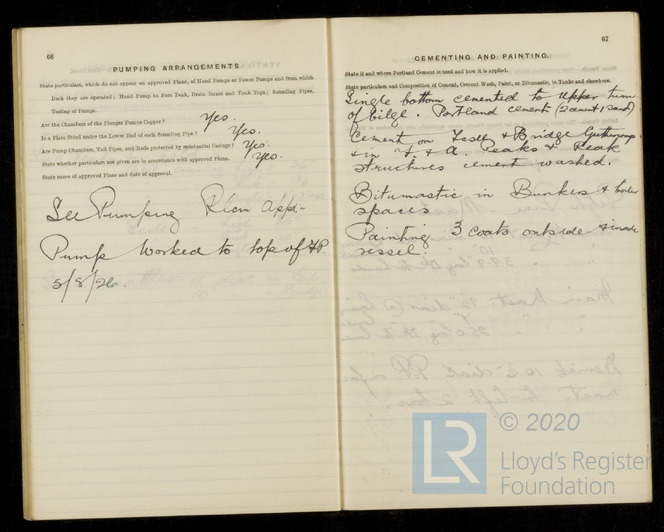 66
PUMPING ARRANGEMENTS.
State particulars, which do not appear on approved Plans, of Hand Pumps or Power Pumps and from which
Deck they are operated; Hand Pump to Fore Peak, Drain Boxes and Tank Tops; Sounding Pipes,
Testing of Pumps.
Are the Chambers of the Plunger Pumps Copper? Yes.
Is a Plate fitted under the Lower End of each Sounding Pipe? Yes.
Are Pump Chambers, Tail Pipes, and Rods protected by substantial Casings? Yes.
State whether particulars not given are in accordance with approved Plans. Yes.
State name of approved Plans and date of approval.
See Pumping Plan app-
Pump worked to top of F.P.
5/8/26.
67
CEMENTING AND PAINTING.
State if and where Portland Cement is used and how it is applied.
State particulars and Composition of Cement, Cement Wash, Paint, or Bitumastic, in Tanks and elsewhere.
Single bottom cemented to upper turn
of bilge. Portland cement (2 cement 1 sand)
Cement on & Bridge Gutterways
& in F. & A. Peaks & Peak
structures cement washed.
Bitumastic in Bunkers & boiler
spaces
Painting 3 coats outside & inside
vessel.
LR
© 2020
Lloyd's Register
Foundation